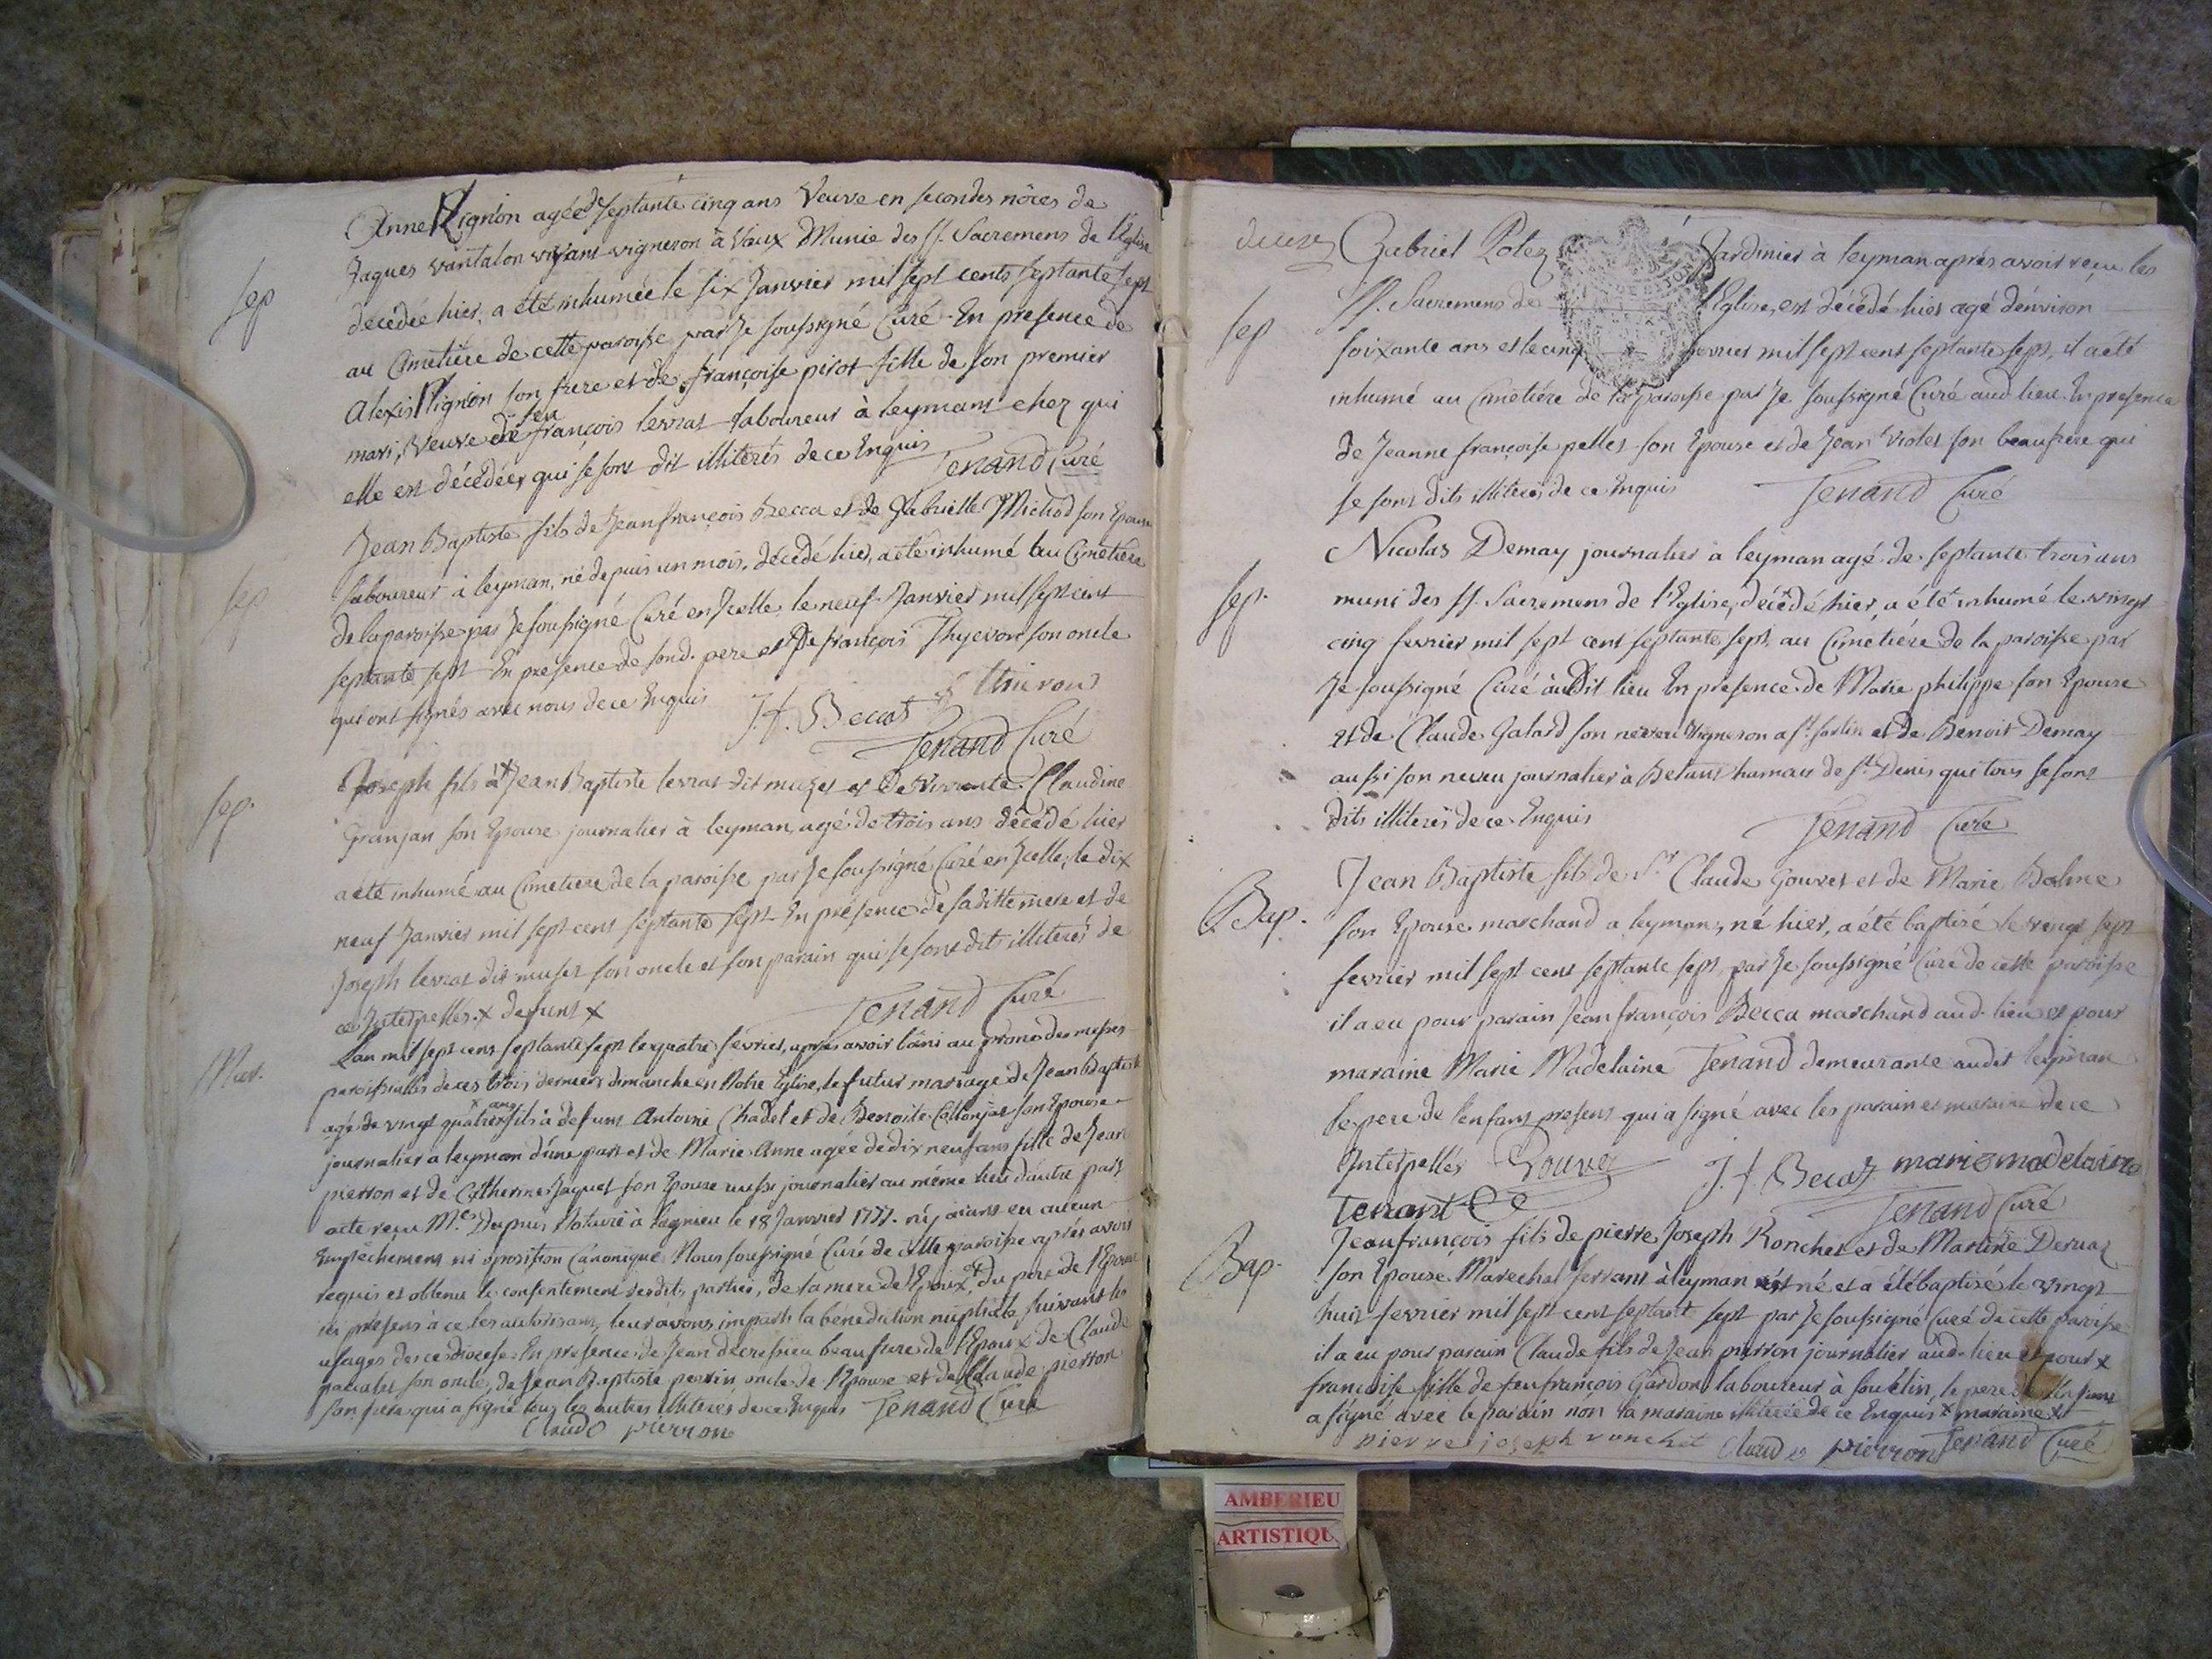 Anne Pignon agée de septante cinq ans Veuve en secondes nôces de
Jaques vantalon vivant vigneron à Vaux Munie des SS. Sacremens de l'Eglise
décédée hier, a été inhumée le six Janvier mil sept cents septante sept
au Cimetiere de cette paroisse par Je soussigné Curé En presence de
Alexis Pignon son frere et de françoise pirot fille de son premier
mari, Veuve de feu françois levrat laboureur à leyment chez qui
elle est décédée, qui se sont dit illiterés de ce Enquis Tenand Curé
sep
Jean Baptiste fils de Jean françois Becca et de Gabrielle Michod son Epouse
laboureur à leyman, né depuis un mois, décédé hier, a été inhumé au Cimetiere
de la paroisse par Je soussigné Curé en Icelle le neuf Janvier mil sept cent
septante sept En presence de sond. pere et de françois Thyevon son oncle
qui ont signés avec nous de ce Enquis J.f. Becat f thievons
Tenand Curé
sep
Joseph fils à + Jean Baptiste levrat dit muzet et de vivante Claudine
Granjan son Epouse journalier à leyman, agé de trois ans décédé hier
a été inhumé au Cimetiere de la paroisse par Je soussigné Curé en Icelle, le dix
neuf Janvier mil sept cent septante sept En présence de sa ditte mere et de
Joseph levrat dit muset son oncle et son parain qui se sont dits illiterés de
ce Interpellés. x defunt x Tenand Curé
sep.
L'an mil sept cent septante sept le quatre fevrier, après avoir bani au prone des messes
paroissialles de ces trois derniers dimanche en Notre Eglise, le futur mariage de Jean Baptiste
agé de vingt quatre x ans fils à defunt Antoine Chadel et de Benoite Collonjat son Epouse
journalier a leyman d'une part et de Marie Anne agée de dix neuf ans fille de Jean
pierron et de Catherine Jaquet son Epouse aussi journalier au même lieu d'autre part
acte reçu Me Dupuis Notaire à Lagnieu le 18 Janvier 1777. n'y aiant eu aucun
Empêchement ni oposition Canonique Nous soussigné Curé de cette paroisse après avoir
requis et obtenu le consentement desdits parties, de la mere de l'Epoux, et du pere de l'Epouse
ici présens à ce les autorisant, leur avons imparti la bénédiction nuptiale suivant les
usages de ce diocese En presence de Jean decrosieu beau frere de l'Epoux de Claude
son oncle, de Jean Baptiste perrin oncle de l'Epouse et de Claude pierron
son frere qui a signé tous les autres illiterés de ce Enquis Tenand Curé
Claude pierron
Mar.
deuze
Gabriel Potez Jardinier à leyman après avoir reçu les
SS. Sacremens de l'Eglise, est décédé hier agé d'environ
soixante ans et le cinq fevrier mil sept cent septante sept, il a été
inhumé au Cimetiére de la paroisse par Je soussigné Curé aud. lieu En presence
de Jeanne françoise pellet son Epouse et de Jean Violet son beaufrere qui
se sont dits illiterés de ce Enquis Tenand Curé
sep
Nicolas Demay journalier à leyman agé de septante trois ans
muni des SS. Sacremens de l'Eglise, décédé hier, a été inhumé le vingt
cinq fevrier mil sept cent septante sept, au Cimetiére de la paroisse par
Je soussigné Curé audit lieu En presence de Marie philippe son Epouse
et de Claude Galard son neveu vigneron a St. sorlin et de Benoit Demay
aussi son neveu journalier à Betant hamau de St. Denis qui tous se sont
dits illiterés de ce Enquis Tenand Curé
sep.
Jean Baptiste fils de Sr. Claude Gouvet et de Marie Balme
son Epouse marchand a leyman, né hier, a été baptisé le vingt sept
fevrier mil sept cent septante sept par Je soussigné Curé de cette paroisse
il a eu pour parain Jean françois Becca marchand aud. lieu et pour
maraine Marie Madelaine Tenand demeurante audit leyman
le pere de l'enfant present qui a signé avec les parain et maraine de ce
Interpellés Gouvet J.f. Becat marie madelaine
tenant Tenand Curé
Bap.
Jeanfrançois fils de pierre Joseph Ronchet et de Martine Deruaz
son Epouse Marechal ferrant à leyman est né et a été baptisé le vingt
huit fevrier mil sept cent septante sept par Je soussigné Curé de cette paroisse
il a eu pour parain Claude fils de Jean pierron journalier aud. lieu et pour x
françoise fille de feu françois Gardon laboureur à souclin, le pere de l'enfant
a signé avec le parain non la maraine illiterée de ce Enquis x maraine x
pierre joseph ronchet Claude pierron Tenand Curé
Bap.
AMBERIEU
ARTISTIQU